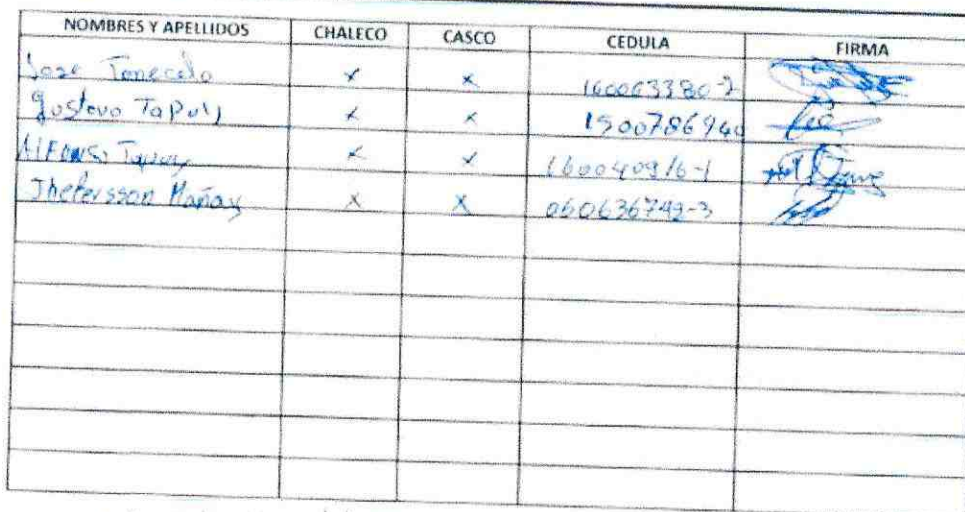 NOMBRES Y APELLIDOS CHALECO CASCO CEDULA FIRMA
Jose Toneceta x x 160063380-2
Gustavo Tapuy x x 1500786940
Alfonso Tapuy x x 160040916-1
Jhefersson Mañay x x 050636742-3